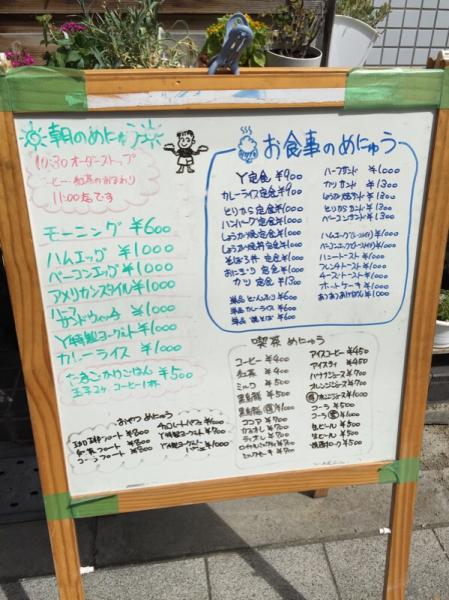 朝のめにゅう
10:30 オーダーストップ
コーヒー・紅茶のおかわり
11:00迄です
モーニング ¥600
ハムエッグ ¥1000
ベーコンエッグ ¥1000
アメリカンスタイル ¥1000
ハーフサンドウィッチ ¥1000
Y特製ヨーグルト ¥1000
カレーライス ¥1000
たまごかけごはん ¥500
玉子2ヶ コーヒー1杯
おやつ めにゅう
コーヒーフロート ¥800
紅茶フロート ¥800
コーラフロート ¥800
チョコレートパフェ
Y特製ヨーグルト
お食事のめにゅう
Y定食 ¥900
カレーライス定食 ¥900
とりから定食 ¥1000
ハンバーグ定食 ¥1000
しょうが焼定食 ¥1000
そぼろ丼 定食 ¥1000
おにぎり 定食 ¥1000
カツ 定食 ¥1300
単品 カレーライス ¥600
単品 焼そば ¥600
ハーフサンド ¥1000
カツサンド ¥1300
しょうが焼サンド ¥1300
とりからサンド ¥1300
ベーコンサンド ¥1000
ハニートースト ¥1000
フレンチトースト ¥1000
チーズトースト ¥1000
ホットケーキ ¥1000
喫茶 めにゅう
コーヒー ¥400
紅茶 ¥400
ミルク ¥500
ココア ¥700
カフェオレ ¥700
ティオレ ¥700
ミルクセーキ ¥700
アイスコーヒー ¥450
アイスティ ¥450
バナナジュース ¥700
オレンジジュース ¥700
コーラ ¥500
生ビール ¥500
焼酎ロック ¥500